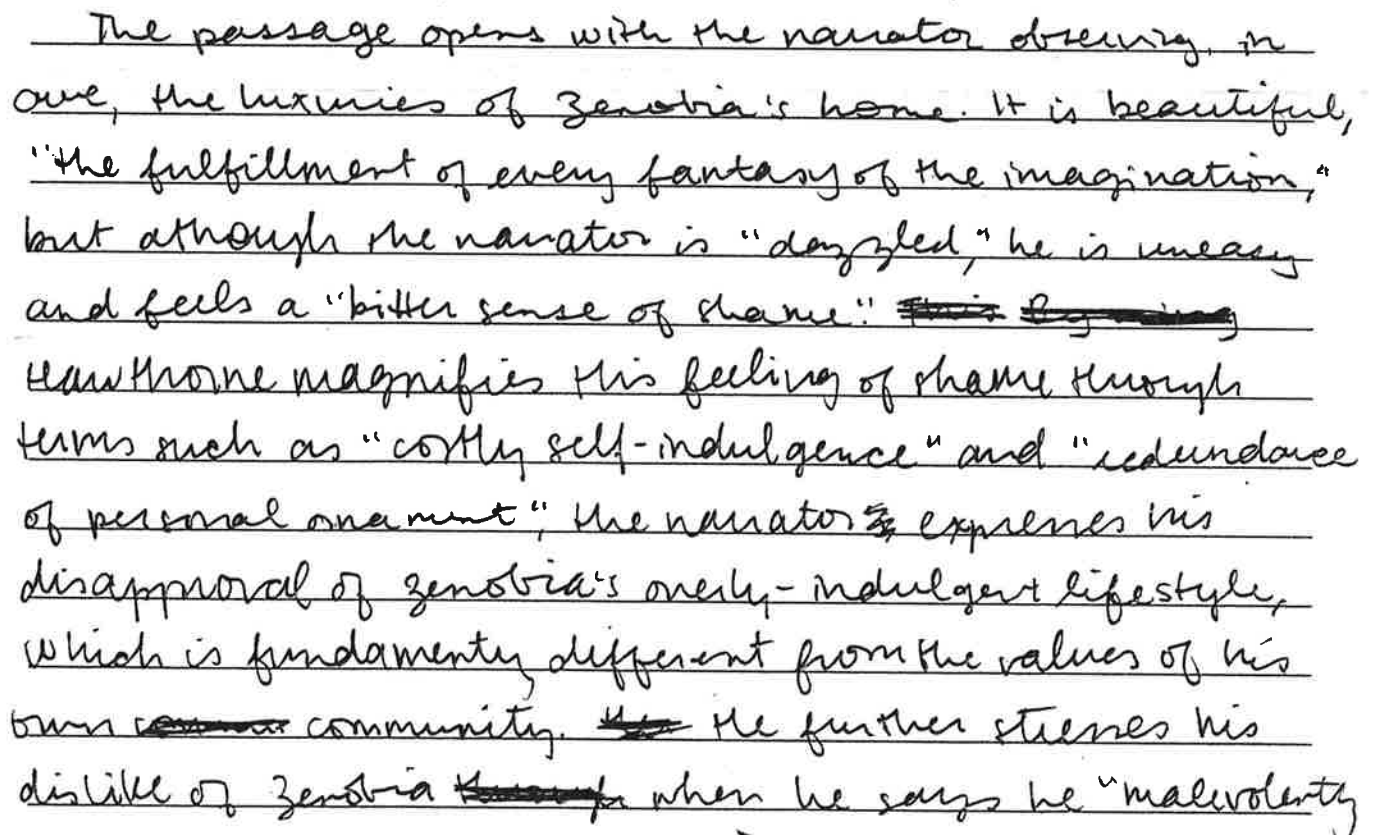 The passage opens with the narrator observing, in
awe, the luxuries of Zenobia's home. It is beautiful,
"the fulfillment of every fantasy of the imagination,"
but athough the narrator is "dazzled," he is uneasy
and feels a "bitter sense of shame."
Hawthorne magnifies this feeling of shame through
terms such as "costly self-indulgence" and "redundance
of personal ornament", the narrator expresses his
disapproval of Zenobia's overly-indulgent lifestyle,
which is fundamenty different from the values of his
own community. He further stresses his
dislike of Zenobia when he says he "malevolently